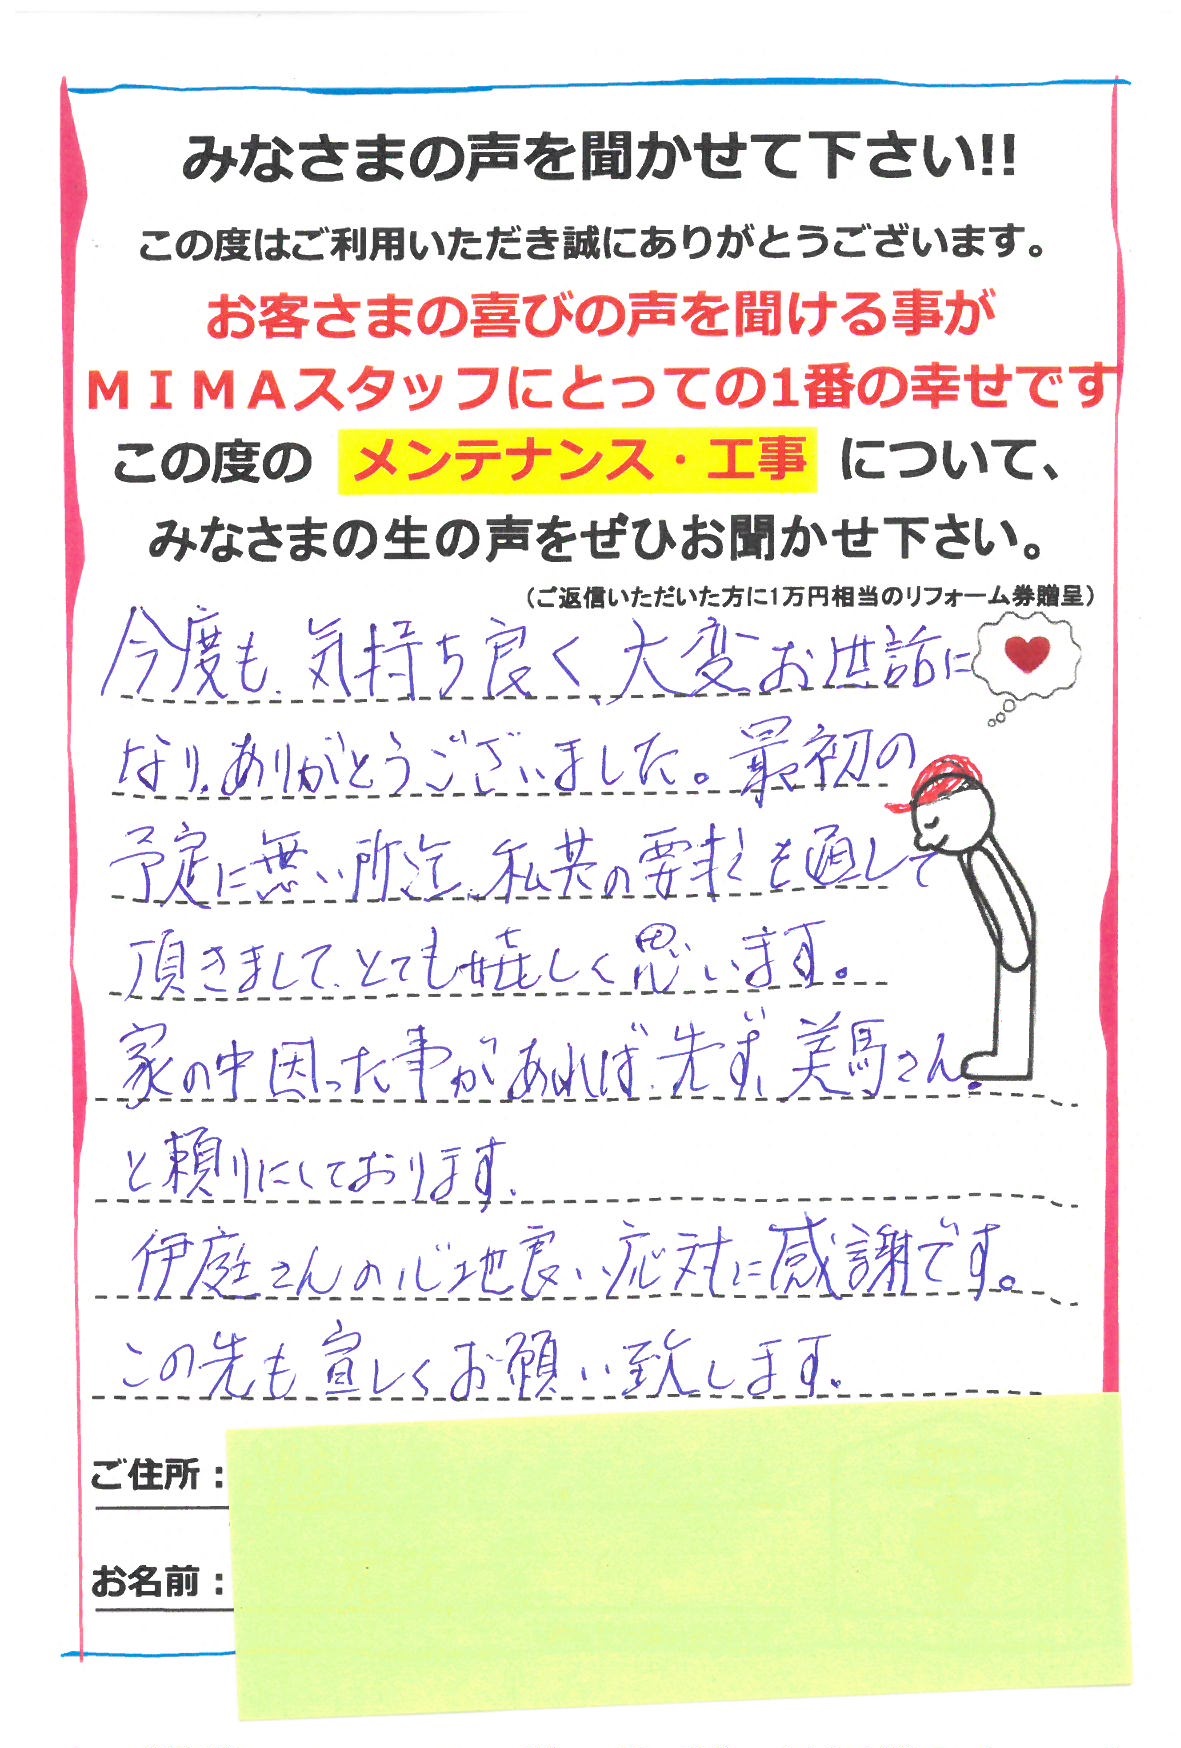 みなさまの声を聞かせて下さい!!
この度はご利用いただき誠にありがとうございます。
お客さまの喜びの声を聞ける事が
ＭＩＭＡスタッフにとっての1番の幸せです
この度の メンテナンス・工事 について、
みなさまの生の声をぜひお聞かせ下さい。
（ご返信いただいた方に1万円相当のリフォーム券贈呈）
今度も、気持ち良く、大変お世話に
なり、ありがとうございました。最初の
予定に無い所迄、私共の要求を通して
頂きまして、とても嬉しく思います。
家の中困った事があれば、先ず、美馬さん。
と頼りにしております。
伊庭さんの心地良い応対に感謝です。
この先も宜しくお願い致します。
ご住所：
お名前：